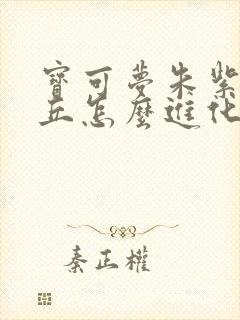 寶可夢朱紫
丘怎麼進化
秦正權